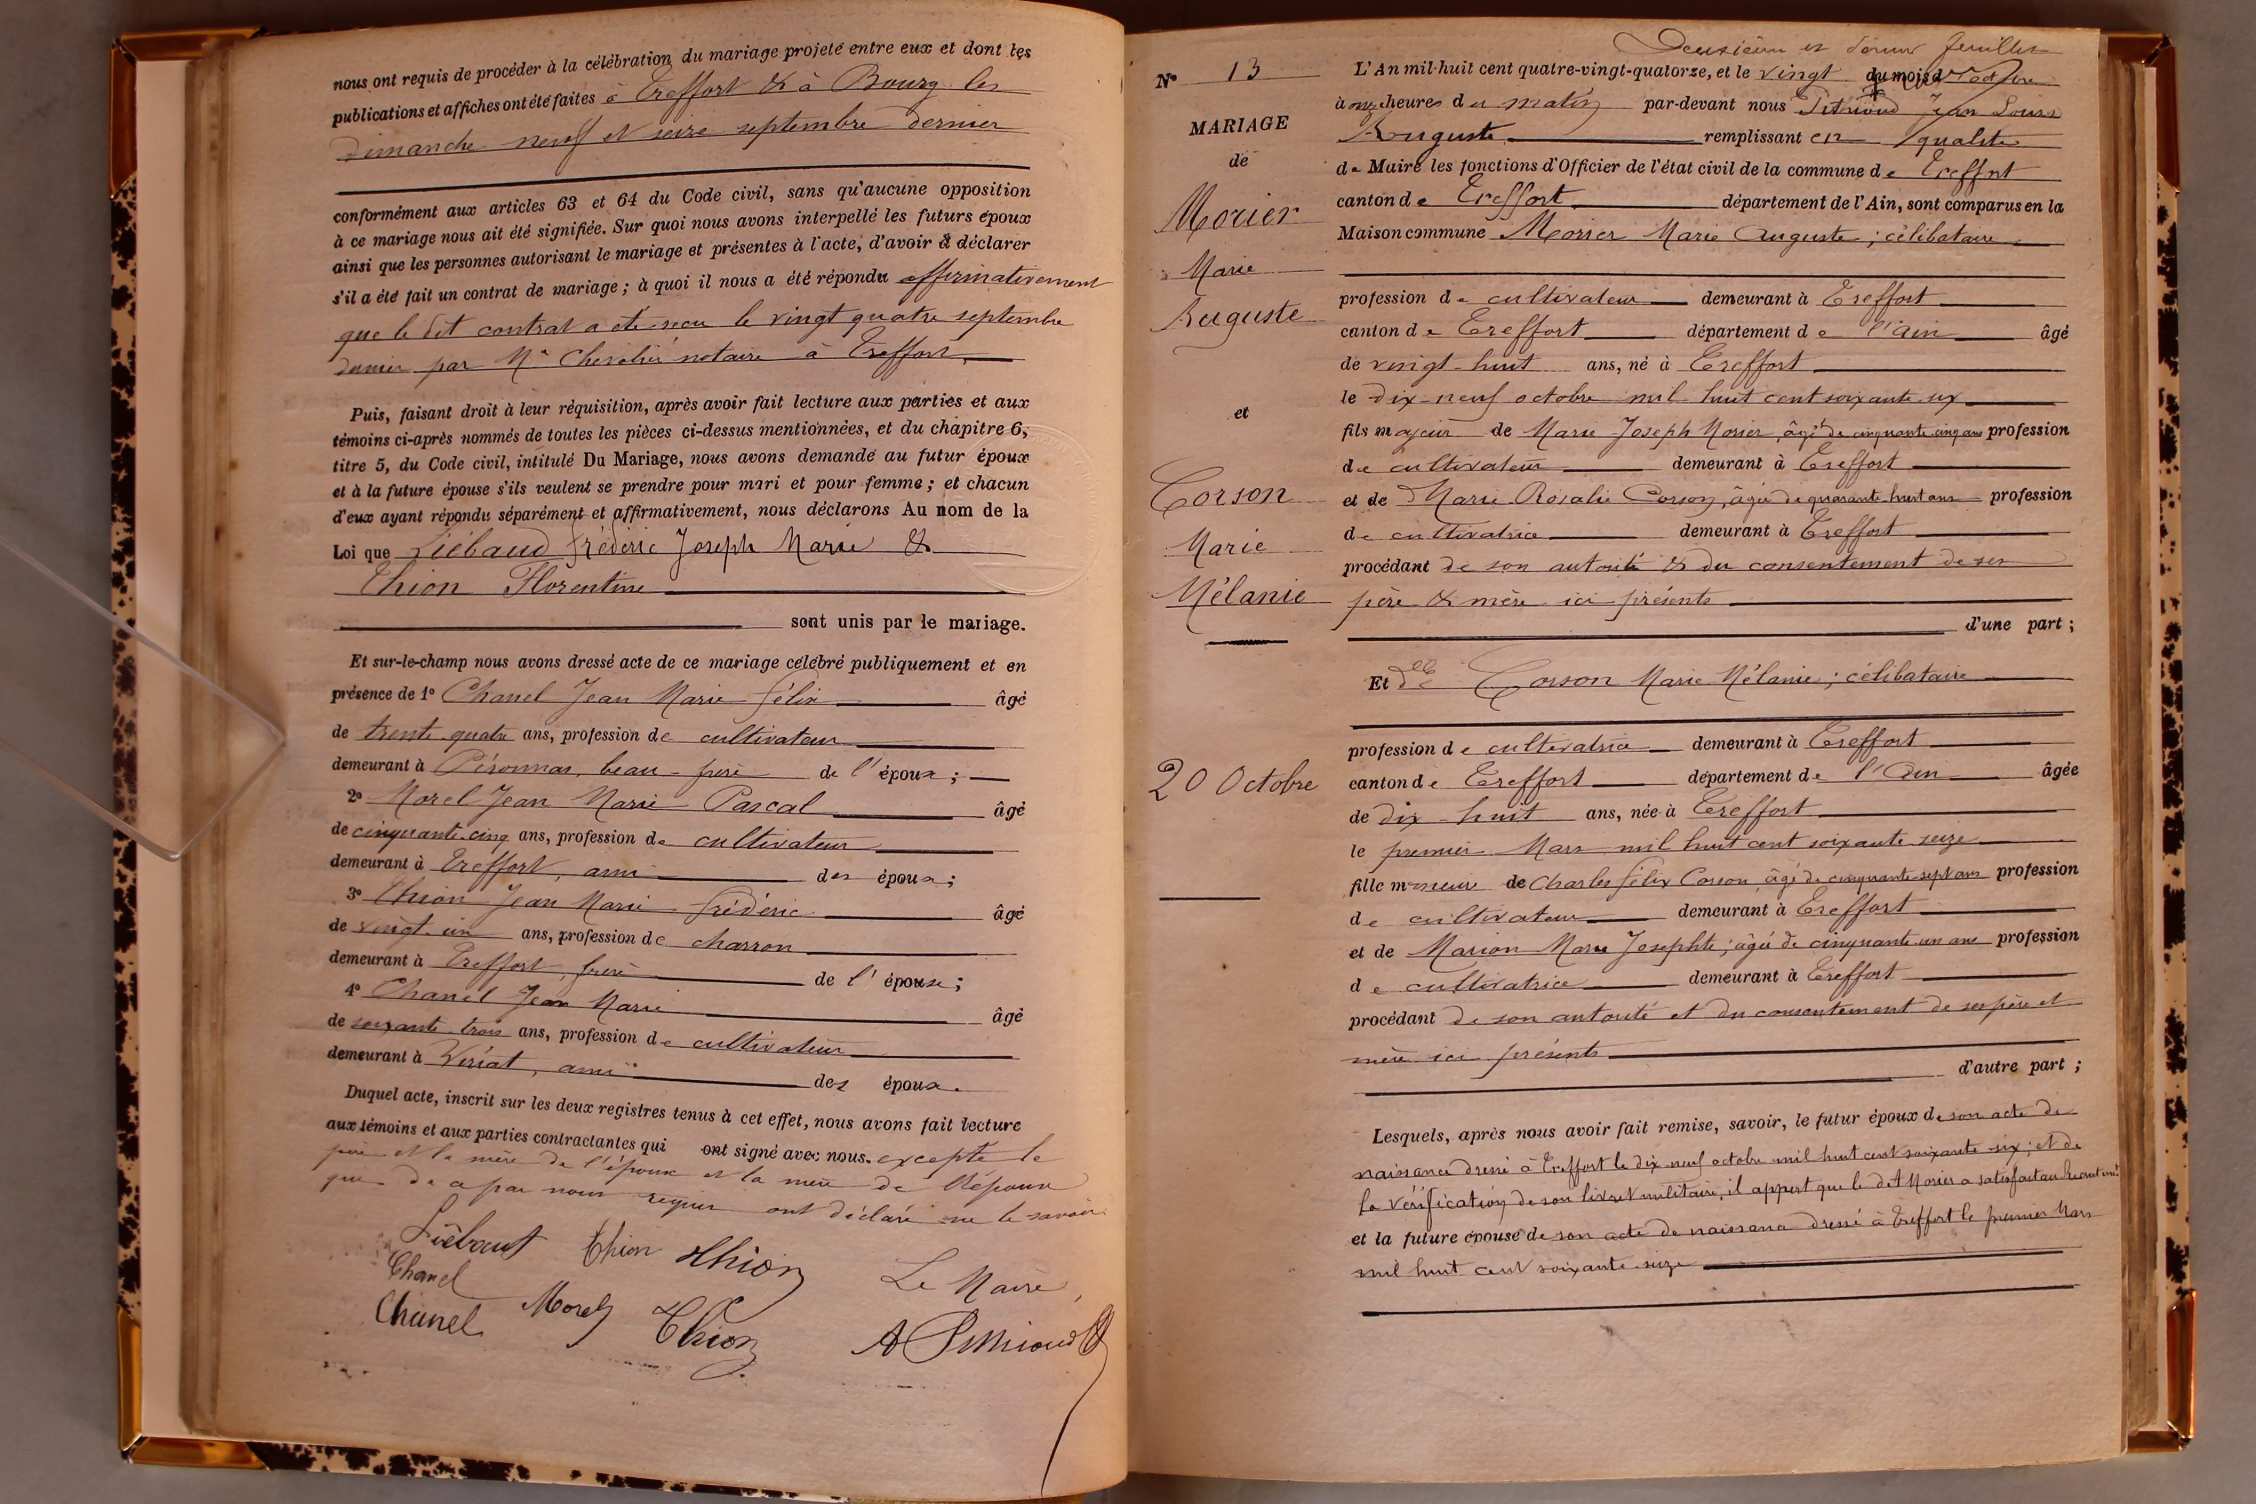 nous ont requis de procéder à la célébration du mariage projeté entre eux et dont les
publications et affiches ont été faites à Treffort & à Bourg les
dimanche neuf et seize septembre dernier
conformément aux articles 63 et 64 du Code civil, sans qu'aucune opposition
à ce mariage nous ait été signifiée. Sur quoi nous avons interpellé les futurs époux
ainsi que les personnes autorisant le mariage et présentes à l'acte, d'avoir à déclarer
s'il a été fait un contrat de mariage ; à quoi il nous a été répondu affirmativement
que le dit contrat a été reçu le vingt quatre septembre
dernier par Me Chevalier notaire à Treffort
Puis, faisant droit à leur réquisition, après avoir fait lecture aux parties et aux
témoins ci-après nommés de toutes les pièces ci-dessus mentionnées, et du chapitre 6,
titre 5, du Code civil, intitulé Du Mariage, nous avons demandé au futur époux
et à la future épouse s'ils veulent se prendre pour mari et pour femme ; et chacun
d'eux ayant répondu séparément et affirmativement, nous déclarons Au nom de la
Loi que Liébaud Frédéric Joseph Marie &
Thion Florentine
sont unis par le mariage.
Et sur-le-champ nous avons dressé acte de ce mariage célébré publiquement et en
présence de 1° Chanel Jean Marie Félix âgé
de trente quatre ans, profession de cultivateur
demeurant à Péronnas, beau-frère de l'époux ;
2° Morel Jean Marie Pascal âgé
de cinquante cinq ans, profession de cultivateur
demeurant à Treffort, ami des époux ;
3° Thion Jean Marie Frédéric âgé
de vingt un ans, profession de charron
demeurant à Treffort, frère de l'épouse ;
4° Chanel Jean Marie âgé
de soixante trois ans, profession de cultivateur
demeurant à Viriat, ami des époux.
Duquel acte, inscrit sur les deux registres tenus à cet effet, nous avons fait lecture
aux témoins et aux parties contractantes qui ont signé avec nous. excepté le
père et la mère de l'époux et la mère de l'épouse
qui de ce par nous requis ont déclaré ne le savoir
Liébaut Thion Thion
Chanel Le Maire,
Chanel Morel Thion
Deuxième et dernier feuillet
N° 13 L'An mil-huit cent quatre-vingt-quatorze, et le vingt du mois d'octobre
à onze heures du matin par-devant nous Jean Louis
MARIAGE
Auguste remplissant en qualité
de
de Maire les fonctions d'Officier de l'état civil de la commune de Treffort
canton de Treffort département de l'Ain, sont comparus en la
Morier
Maison commune Morier Marie Auguste ; célibataire
Marie
profession de cultivateur demeurant à Treffort
Auguste
canton de Treffort département de l'Ain âgé
de vingt-huit ans, né à Treffort
le dix-neuf octobre mil huit cent soixante six
et
fils majeur de Marie Joseph Morier, âgé de cinquante cinq ans profession
de cultivateur demeurant à Treffort
Corson
et de Marie Rosalie Corson, âgée de quarante huit ans profession
de cultivatrice demeurant à Treffort
Marie
procédant de son autorité & du consentement de ses
Mélanie
père & mère ici présents
d'une part ;
Et dlle Corson Marie Mélanie ; célibataire
profession de cultivatrice demeurant à Treffort
20 Octobre
canton de Treffort département de l'Ain âgée
de dix-huit ans, née à Treffort
le premier Mars mil huit cent soixante seize
fille mineure de Charles Félix Corson, âgé de cinquante sept ans profession
de cultivateur demeurant à Treffort
et de Marion Marie Josephte ; âgée de cinquante un ans profession
de cultivatrice demeurant à Treffort
procédant de son autorité et du consentement de ses père et
mère ici présents
d'autre part ;
Lesquels, après nous avoir fait remise, savoir, le futur époux de son acte de
naissance dressé à Treffort le dix neuf octobre mil huit cent soixante six ; et de
la vérification de son livret militaire, il appert que le dit Morier a satisfait au recrutmt.
et la future épouse de son acte de naissance dressé à Treffort le premier Mars
mil huit cent soixante seize